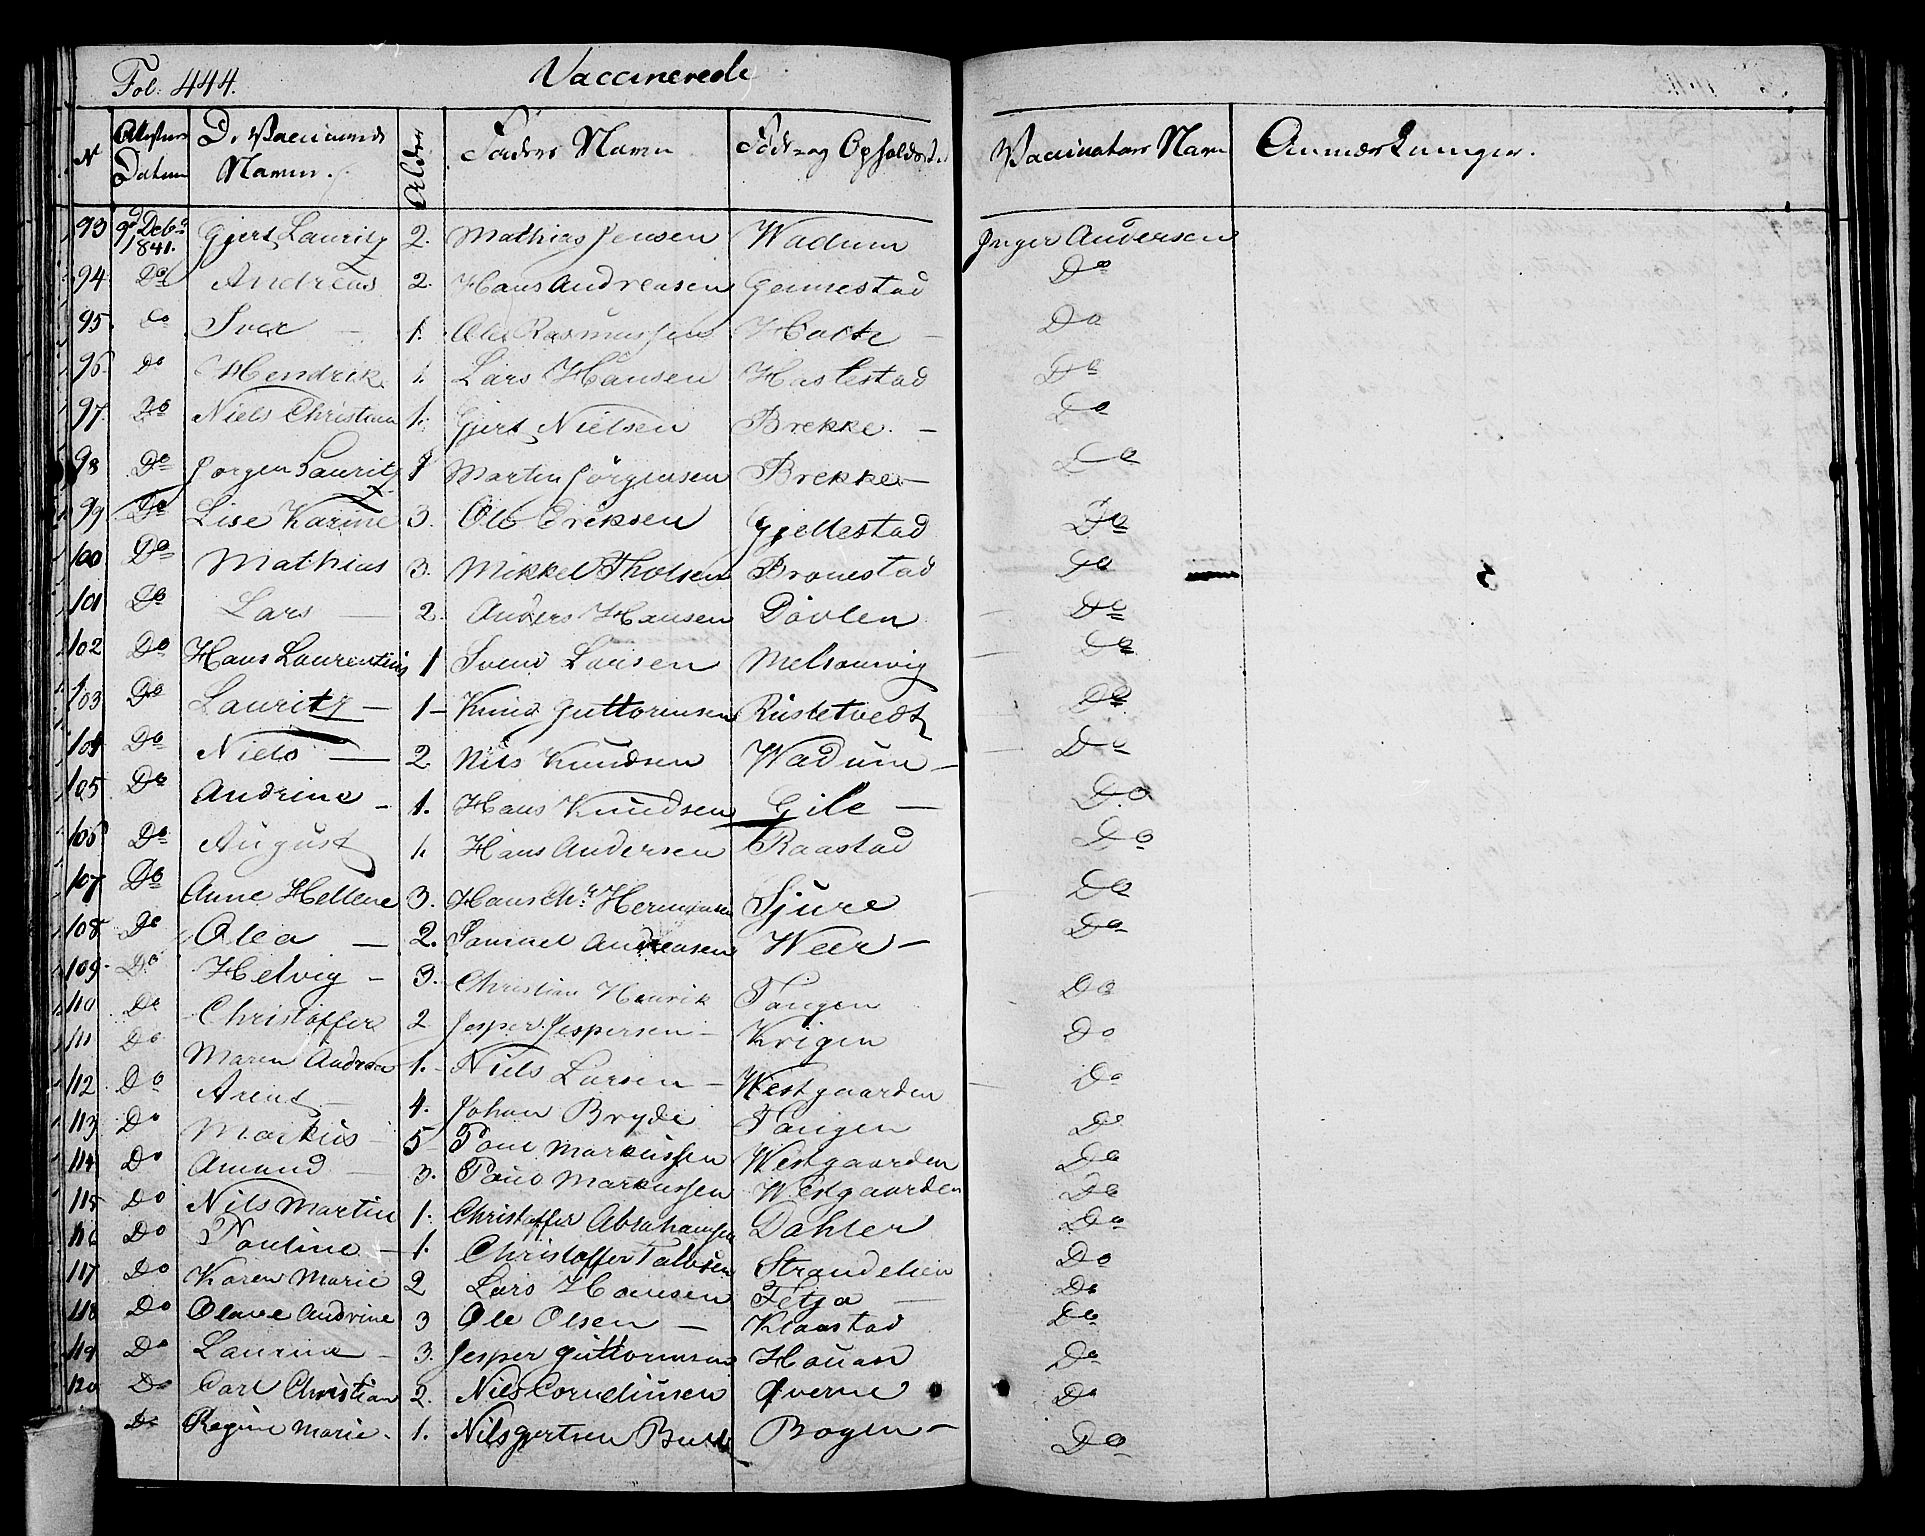 Fol: 444. Vaccinerede
N Attestens Datum De Vaccineredes Navne. Alder Faders Navn Føde- og Opholdsted Vaccinateurs Navn Anmærkninger.
93 9d Decbr 1841. Gjert Lauritz 2. Mathias Jensen Wadum Inger Andersen
94 Do Andreas 2. Hans Andreasen Gennestad Do
95. Do 1. Ole Rasmussen Do
96. Do Hendrik 1. Lars Hansen Haslestad Do
97. Do Niels Christian 1. Gjert Nielsen Brekke. — Do
98 Do Jørgen Lauritz 1 Martin Jørgensen Brekke — Do
99 Do Lise Karine 3. Ole Eriksen Gjellestad Do
100 Do Mathias 3. Mikkel Tholsen Bronestad Do
101 Do Lars — 2. Anders Hansen Døvlen Do
102 Do Hans Laurentius 1 Svend Larsen Melsomvig Do
103 Do Lauritz — 1 — Knud Guttormsen Ristetvedt Do
104 Do Niels — 2. Nils Knudsen Wadum — Do
105 Do Andrine — 1. Hans Knudsen Gile — Do
106 Do August 1. Hans Andersen Raastad Do
107 Do Anne Hellene 3. Hans Chr. Hermansen Sjure Do
108 Do Olea — 2. Samuel Andreasen Weer — Do
109. Do Helvig — 3. Christian Henrik Tangen Do
110 Do Christoffer 2 Jesper Jespersen — Krigen Do
111 Do Maren Andrea 1. Niels Larsen — Westgaarden Do
112 Do Arent — 4. Johan Bryde Tangen Do
113 Do Markus 5 Poul Markussen Westgaarden Do
114 Do Amund — 3. Poul Markussen Westgaarden Do
115 Do Nils Martin 1. Christoffer Abrahamsen Dahler Do
116 Do Pauline — 1. Christoffer Strandelien Do
117 Do Karen Marie 2 Lars Hansen Fetja — Do
118 Do Olave Andrine 3 Ole Olsen — Klaastad Do
119 Do Laurine — 3. Jesper Guttormsen Hauan Do
120 Do Carl Christian 2. Nils Corneliusen Qverne Do
Do Regine Marie. 1. Nils Gjertsen Bogen — Do